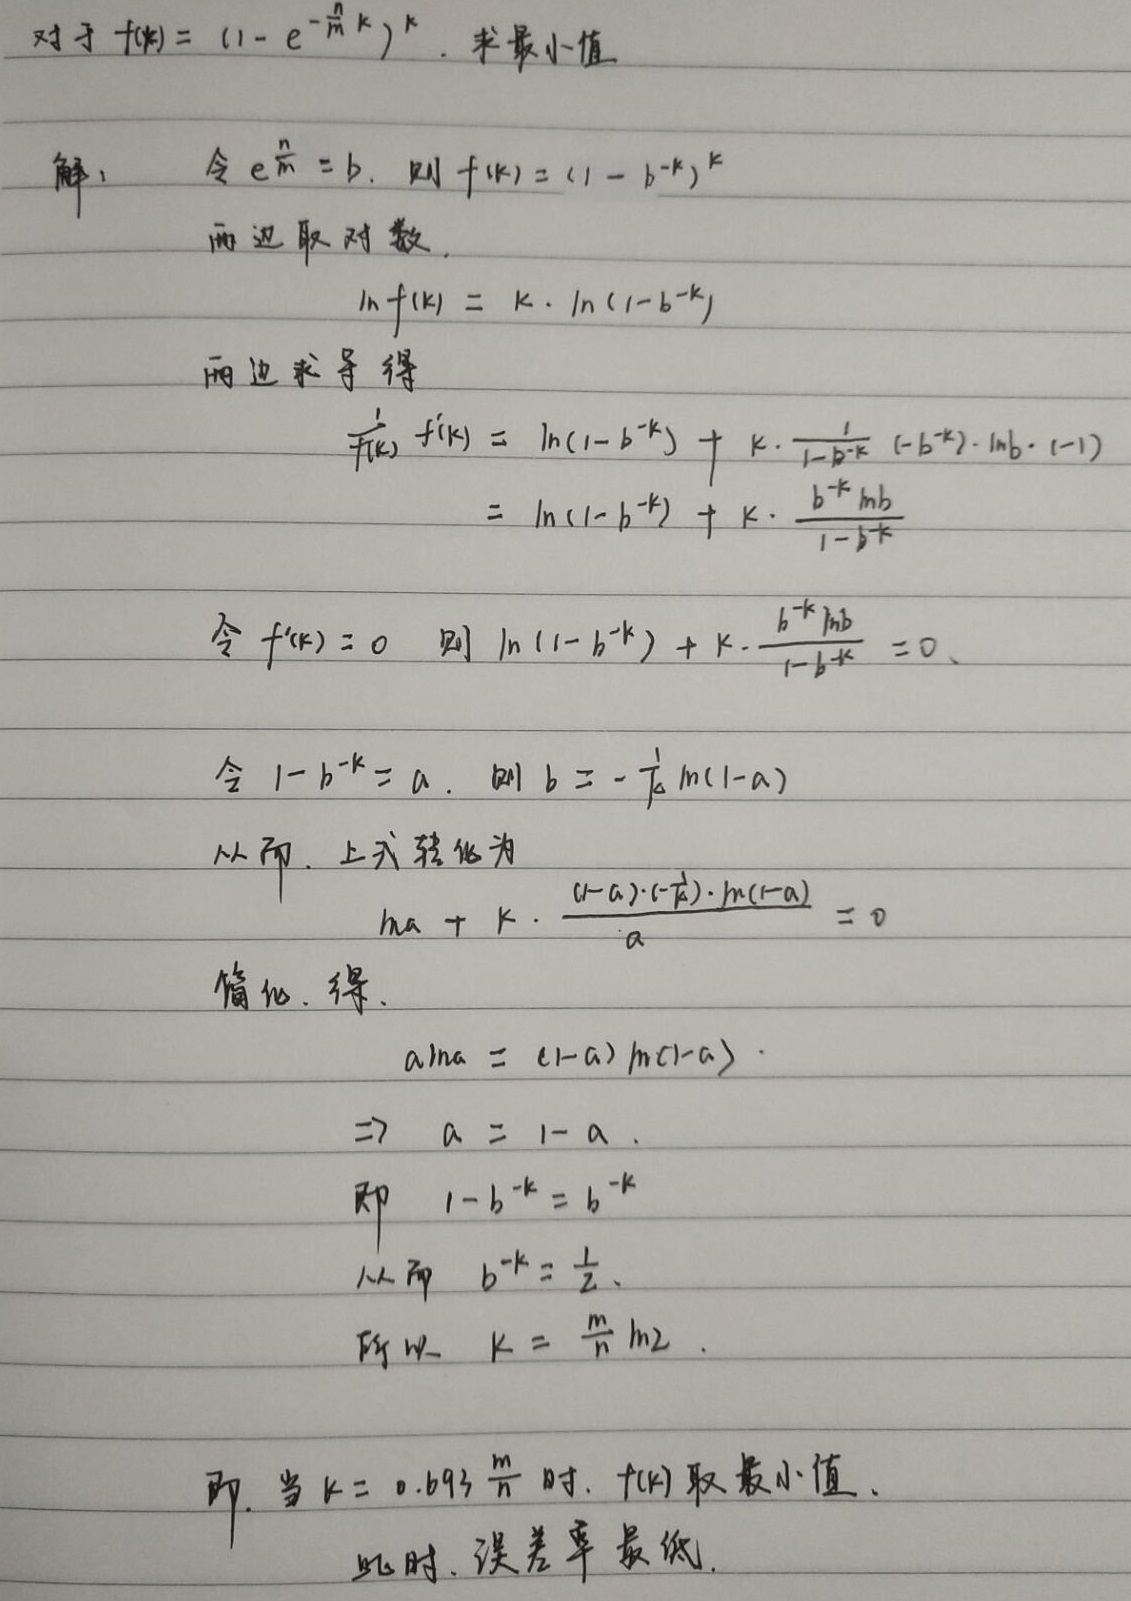 对于 f(k) = (1 - e^{-\frac{n}{m}k})^k . 求最小值
解: 令 e^{\frac{n}{m}} = b. 则 f(k) = (1 - b^{-k})^k
两边取对数.
ln f(k) = k · ln(1-b^{-k})
两边求导得
\frac{1}{f(k)} f'(k) = ln(1-b^{-k}) + k · \frac{1}{1-b^{-k}} (-b^{-k}) · lnb · (-1)
= ln(1-b^{-k}) + k · \frac{b^{-k} lnb}{1-b^{-k}}
令 f'(k) = 0 则 ln(1-b^{-k}) + k · \frac{b^{-k} lnb}{1-b^{-k}} = 0、
令 1-b^{-k} = a. 则 b = -\frac{1}{k} ln(1-a)
从而. 上式转化为
lna + k · \frac{(1-a)·(-\frac{1}{k})·ln(1-a)}{a} = 0
简化. 得、
alna = (1-a) ln(1-a) .
=> a = 1-a .
即 1-b^{-k} = b^{-k}
从而 b^{-k} = \frac{1}{2}、
所以 k = \frac{m}{n} ln2 .
即. 当 k = 0.693 \frac{m}{n} 时. f(k) 取最小值、
此时. 误差率最低.